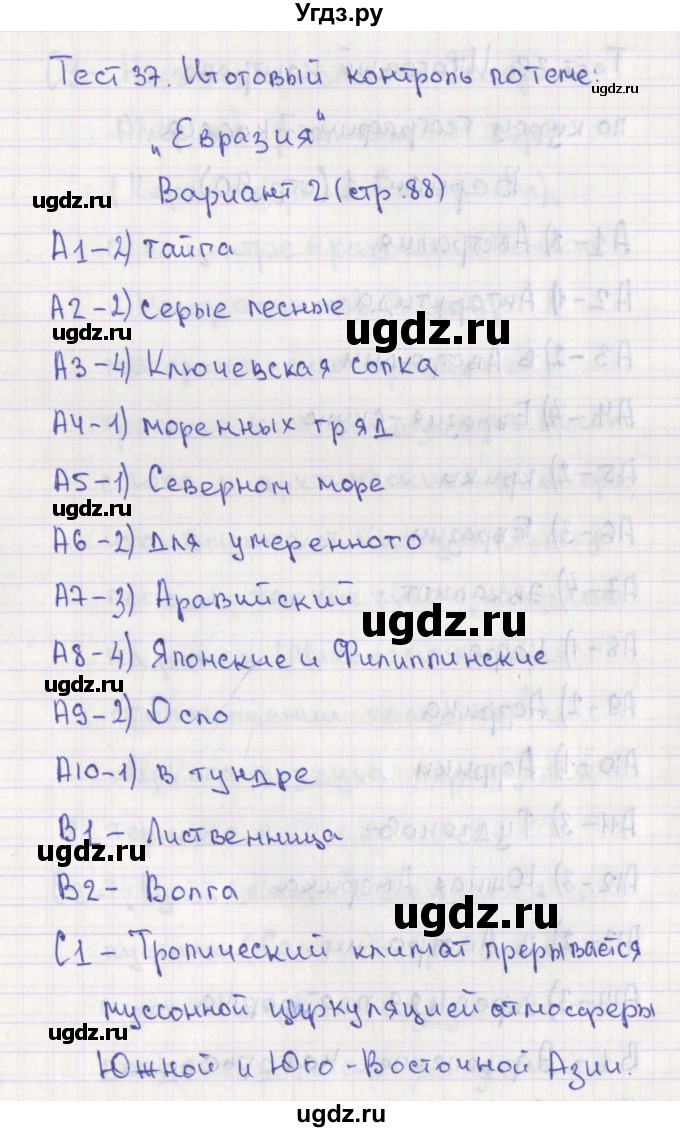 Угдз.ру
Тест 37. Итоговый контроль по теме:
ugdz.ru
„Евразия"
Вариант 2 (стр. 88)
ugdz.ru
А1-2) тайга
А2-2) серые лесные
ugdz.ru
ugdz.ru
А3-4) Ключевская сопка
А4-1) моренных гряд
А5-1) Северном море
ugdz.ru
А6-2) для умеренного
А7-3) Аравийский
ugdz.ru
А8-4) Японские и Филиппинские
ugdz.ru
А9-2) Осло
А10-1) в тундре
В1- Лиственница
ugdz.ru
В2- Волга
ugdz.ru
С1-Тропический климат прерывается
муссонной циркуляцией атмосферы
Южной и Юго-Восточной Азии.
ugdz.ru